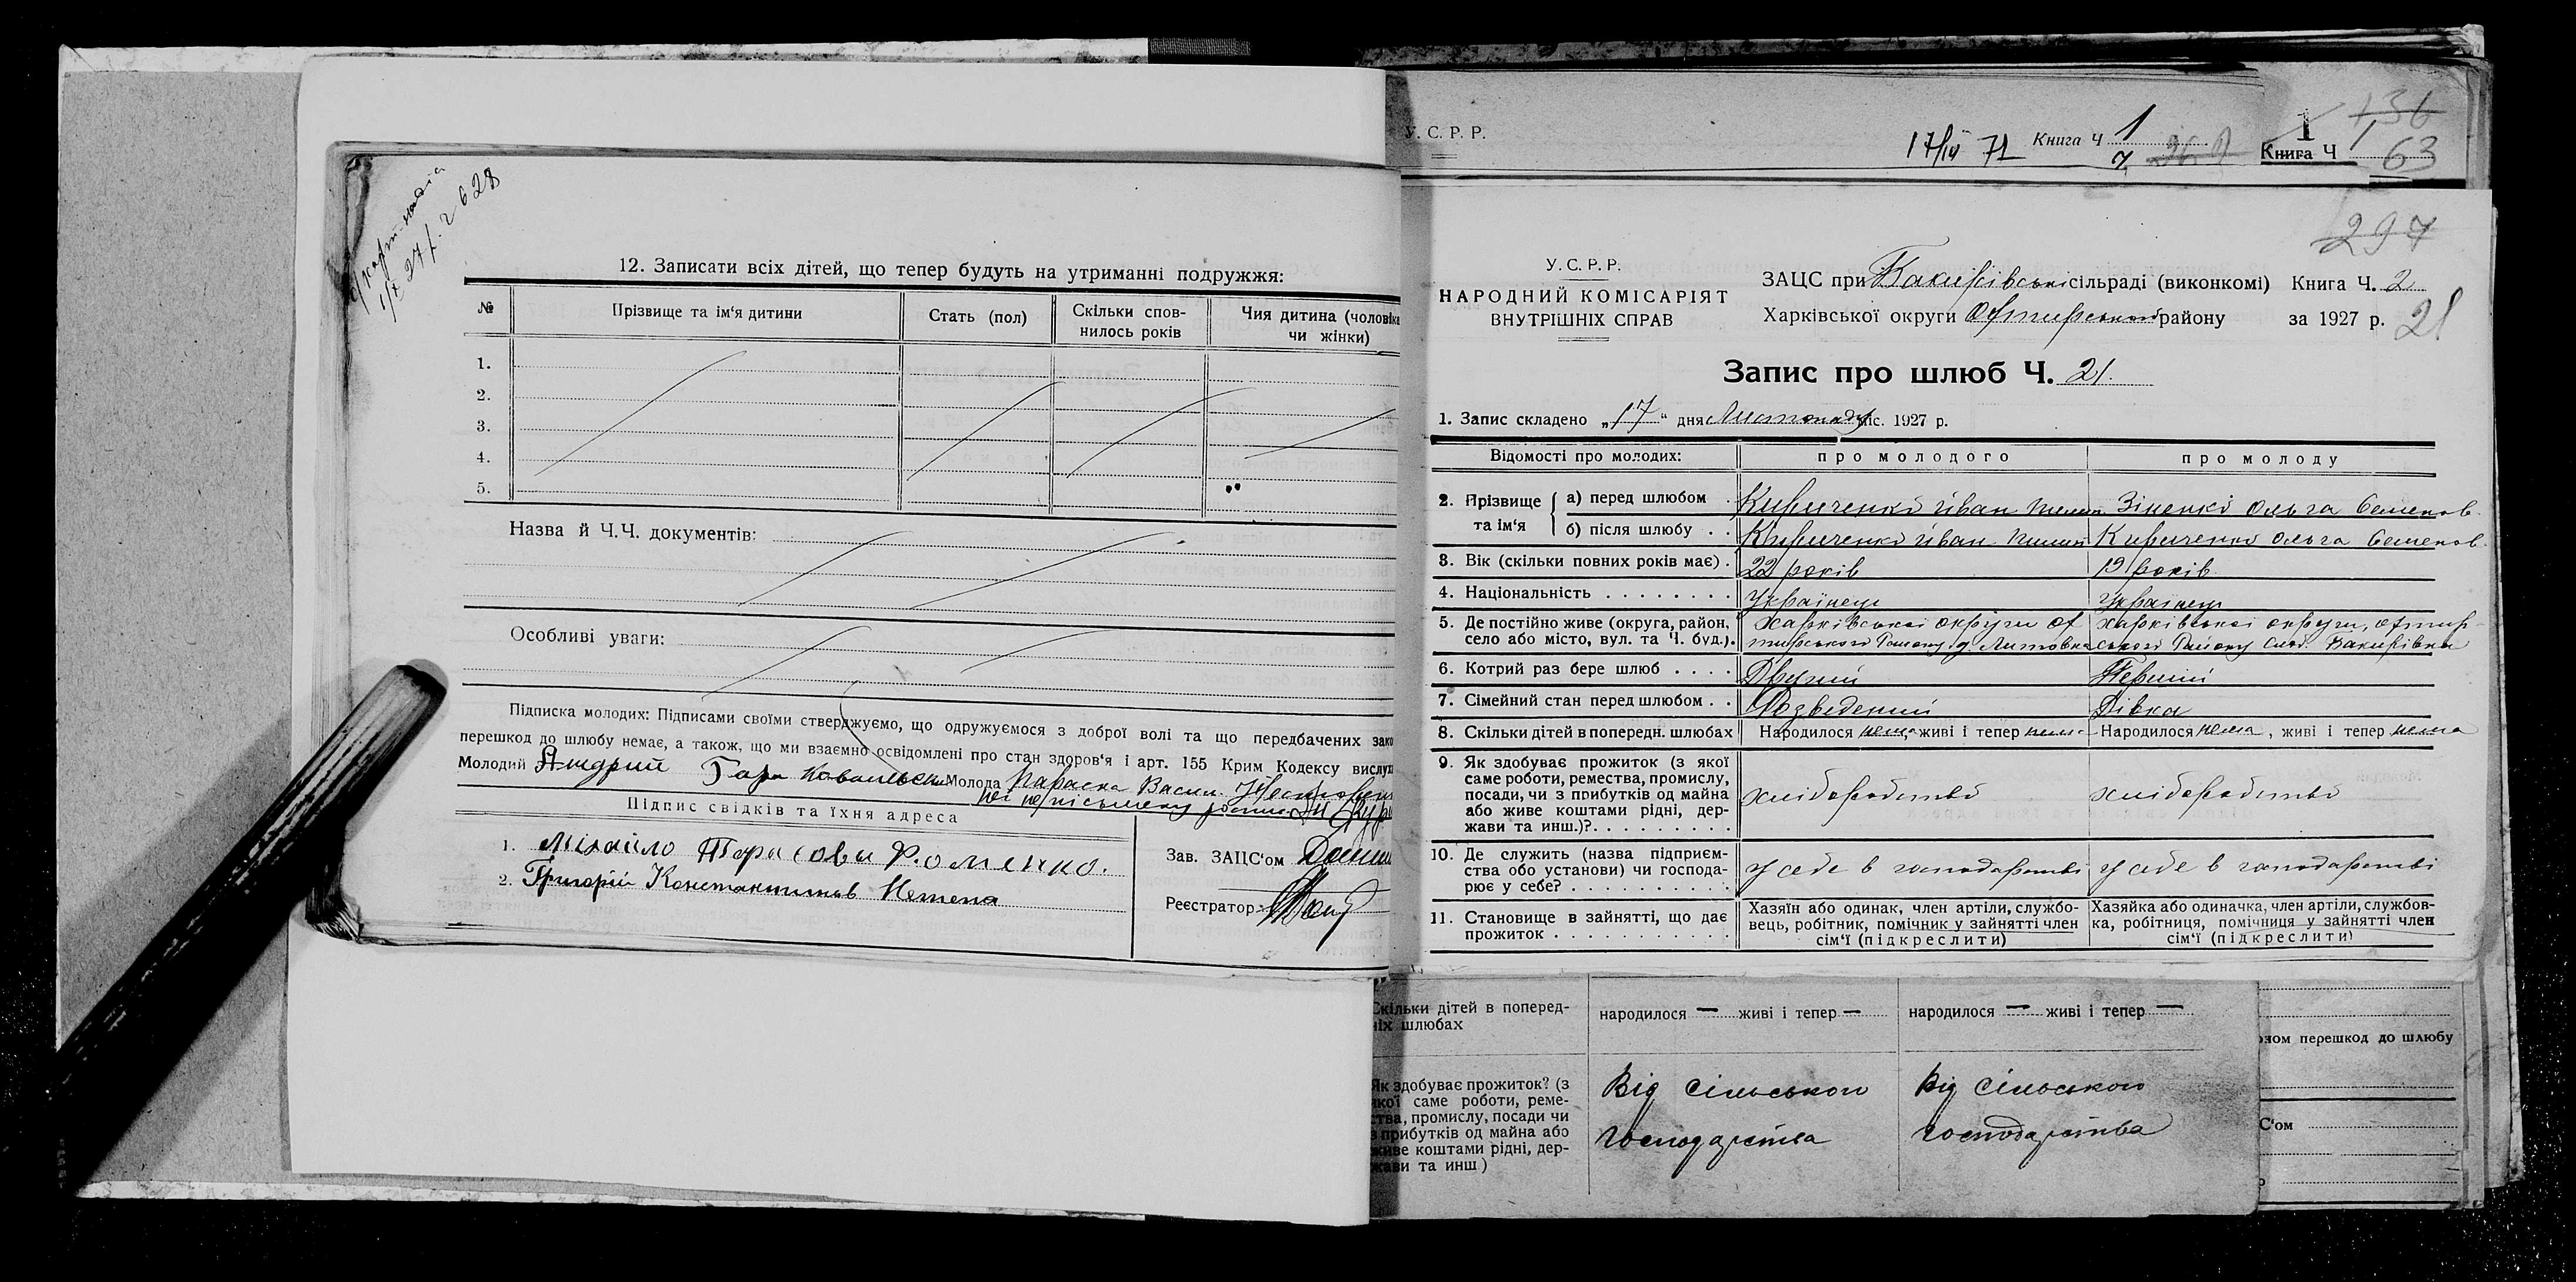 12. Записати всіх дітей, що тепер будуть на утриманні подружжя:
№ Прізвище та ім'я дитини Стать (пол) Скільки спов-нилось років Чия дитина (чоловіка чи жінки)
1.
2.
3.
4.
5.
Назва й Ч.Ч. документів:
Особливі уваги:
Підписка молодих: Підписами своїми стверджуємо, що одружуємося з доброї волі та що передбачених зако
перешкод до шлюбу немає, а також, що ми взаємно освідомлені про стан здоров'я і арт. 155 Крим Кодексу вислух
Молодий Андрий Молода Параска Васил.
Підпис свідків та їхня адреса
1. Міхайло Тарасови Роменко.
2. Григорій Константинов Нетепа
Зав. ЗАЦС'ом
Реєстратор
У. С. Р. Р.
17/IV 71 Книга Ч 1
Книга Ч 1
136
63
297
У. С. Р. Р.
НАРОДНИЙ КОМІСАРІЯТ
ВНУТРІШНІХ СПРАВ
ЗАЦС при Бакирівські сільраді (виконкомі) Книга Ч. 2
Харківської округи Охтирського району за 1927 р. 21
Запис про шлюб Ч. 21.
1. Запис складено „17" дня Листопаду міс. 1927 р.
Відомості про молодих: про молодого про молоду
2. Прізвище та ім'я
а) перед шлюбом Кириченко Іван Зіненко Ольга Семенов.
б) після шлюбу Кириченко Іван Кириченко Ольга Семенов.
3. Вік (скільки повних років має) 22 років 19 років
4. Національність Українець Українец
5. Де постійно живе (округа, район, Харківської округи Ох Харківської округи, Охтир-
село або місто, вул. та Ч. буд.). тирського Району Литовка ського Району Слоб. Бакирівка
6. Котрий раз бере шлюб Другий Перший
7. Сімейний стан перед шлюбом Розведений Дівка
8. Скільки дітей в попередн. шлюбах Народилося нема, живі і тепер нема Народилося нема, живі і тепер нема
9. Як здобуває прожиток (з якої
саме роботи, ремества, промислу,
посади, чи з прибутків од майна хліборобство хліборобство
або живе коштами рідні, дер-
жави та инш.)?
10. Де служить (назва підприєм-
ства або установи) чи господа- у себе в господарстві у себе в господарстві
рює у себе?
11. Становище в зайнятті, що дає
прожиток
Хазяїн або одинак, член артіли, службо-
вець, робітник, помічник у зайнятті член
сім'ї (підкреслити)
Хазяйка або одиначка, член артіли, службов-
ка, робітниця, помічниця у зайнятті член
сім'ї (підкреслити)
Скільки дітей в поперед-
ніх шлюбах
народилося — живі і тепер — народилося — живі і тепер —
Як здобуває прожиток? (з
якої саме роботи, реме-
ства, промислу, посади чи
з прибутків од майна або
живе коштами рідні, дер-
жави та инш)
Від сільського
господарства
Від сільського
господарства
ном перешкод до шлюбу
С'ом